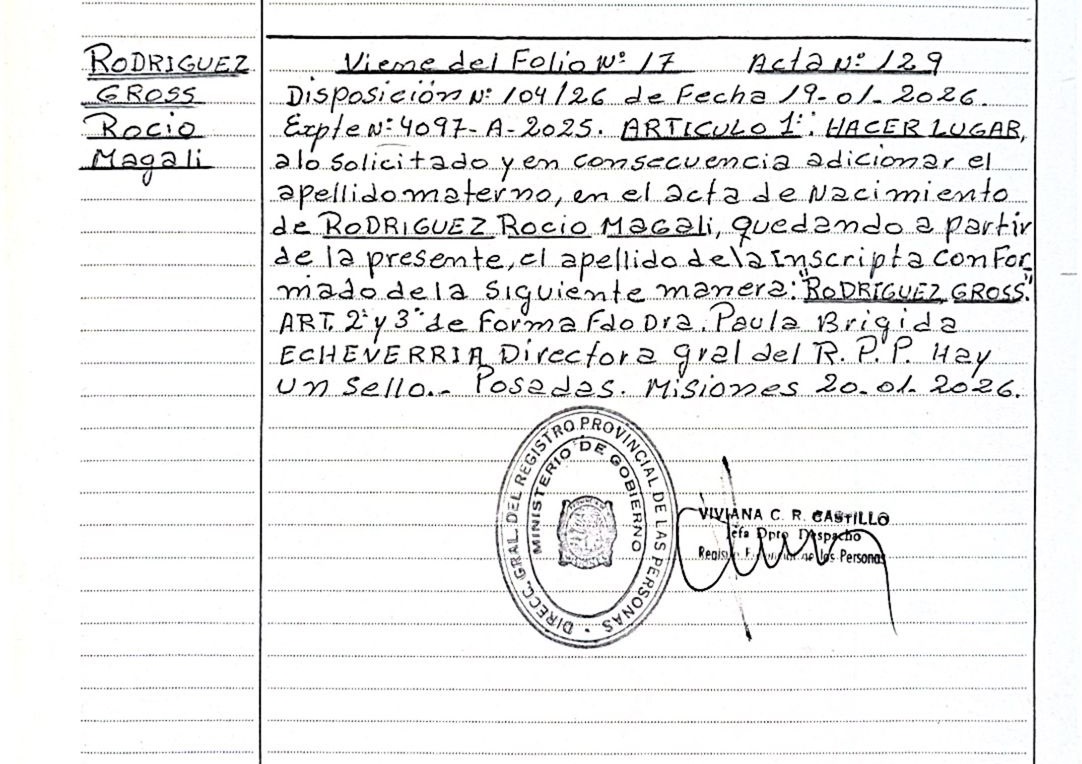 RODRIGUEZ
GROSS
Rocio
Magali
Viene del Folio Nº 17 Acta Nº 129
Disposición Nº 104/26 de Fecha 19-01-2026.
Expte Nº 4097-A-2025. ARTICULO 1º: HACER LUGAR,
a lo solicitado y en consecuencia adicionar el
apellido materno, en el acta de Nacimiento
de RODRIGUEZ Rocio Magali, quedando a partir
de la presente, el apellido de la Inscripta confor
mado de la siguiente manera: "RODRIGUEZ GROSS."
ART. 2º y 3º de forma Fdo Dra. Paula Brigida
ECHEVERRIA Directora gral del R. P. P. Hay
un sello.- Posadas. Misiones 20-01-2026.
DIRECC. GRAL. DEL REGISTRO PROVINCIAL DE LAS PERSONAS
MINISTERIO DE GOBIERNO
VIVIANA C. R. CASTILLO
Jefa Dpto Despacho
de las Personas